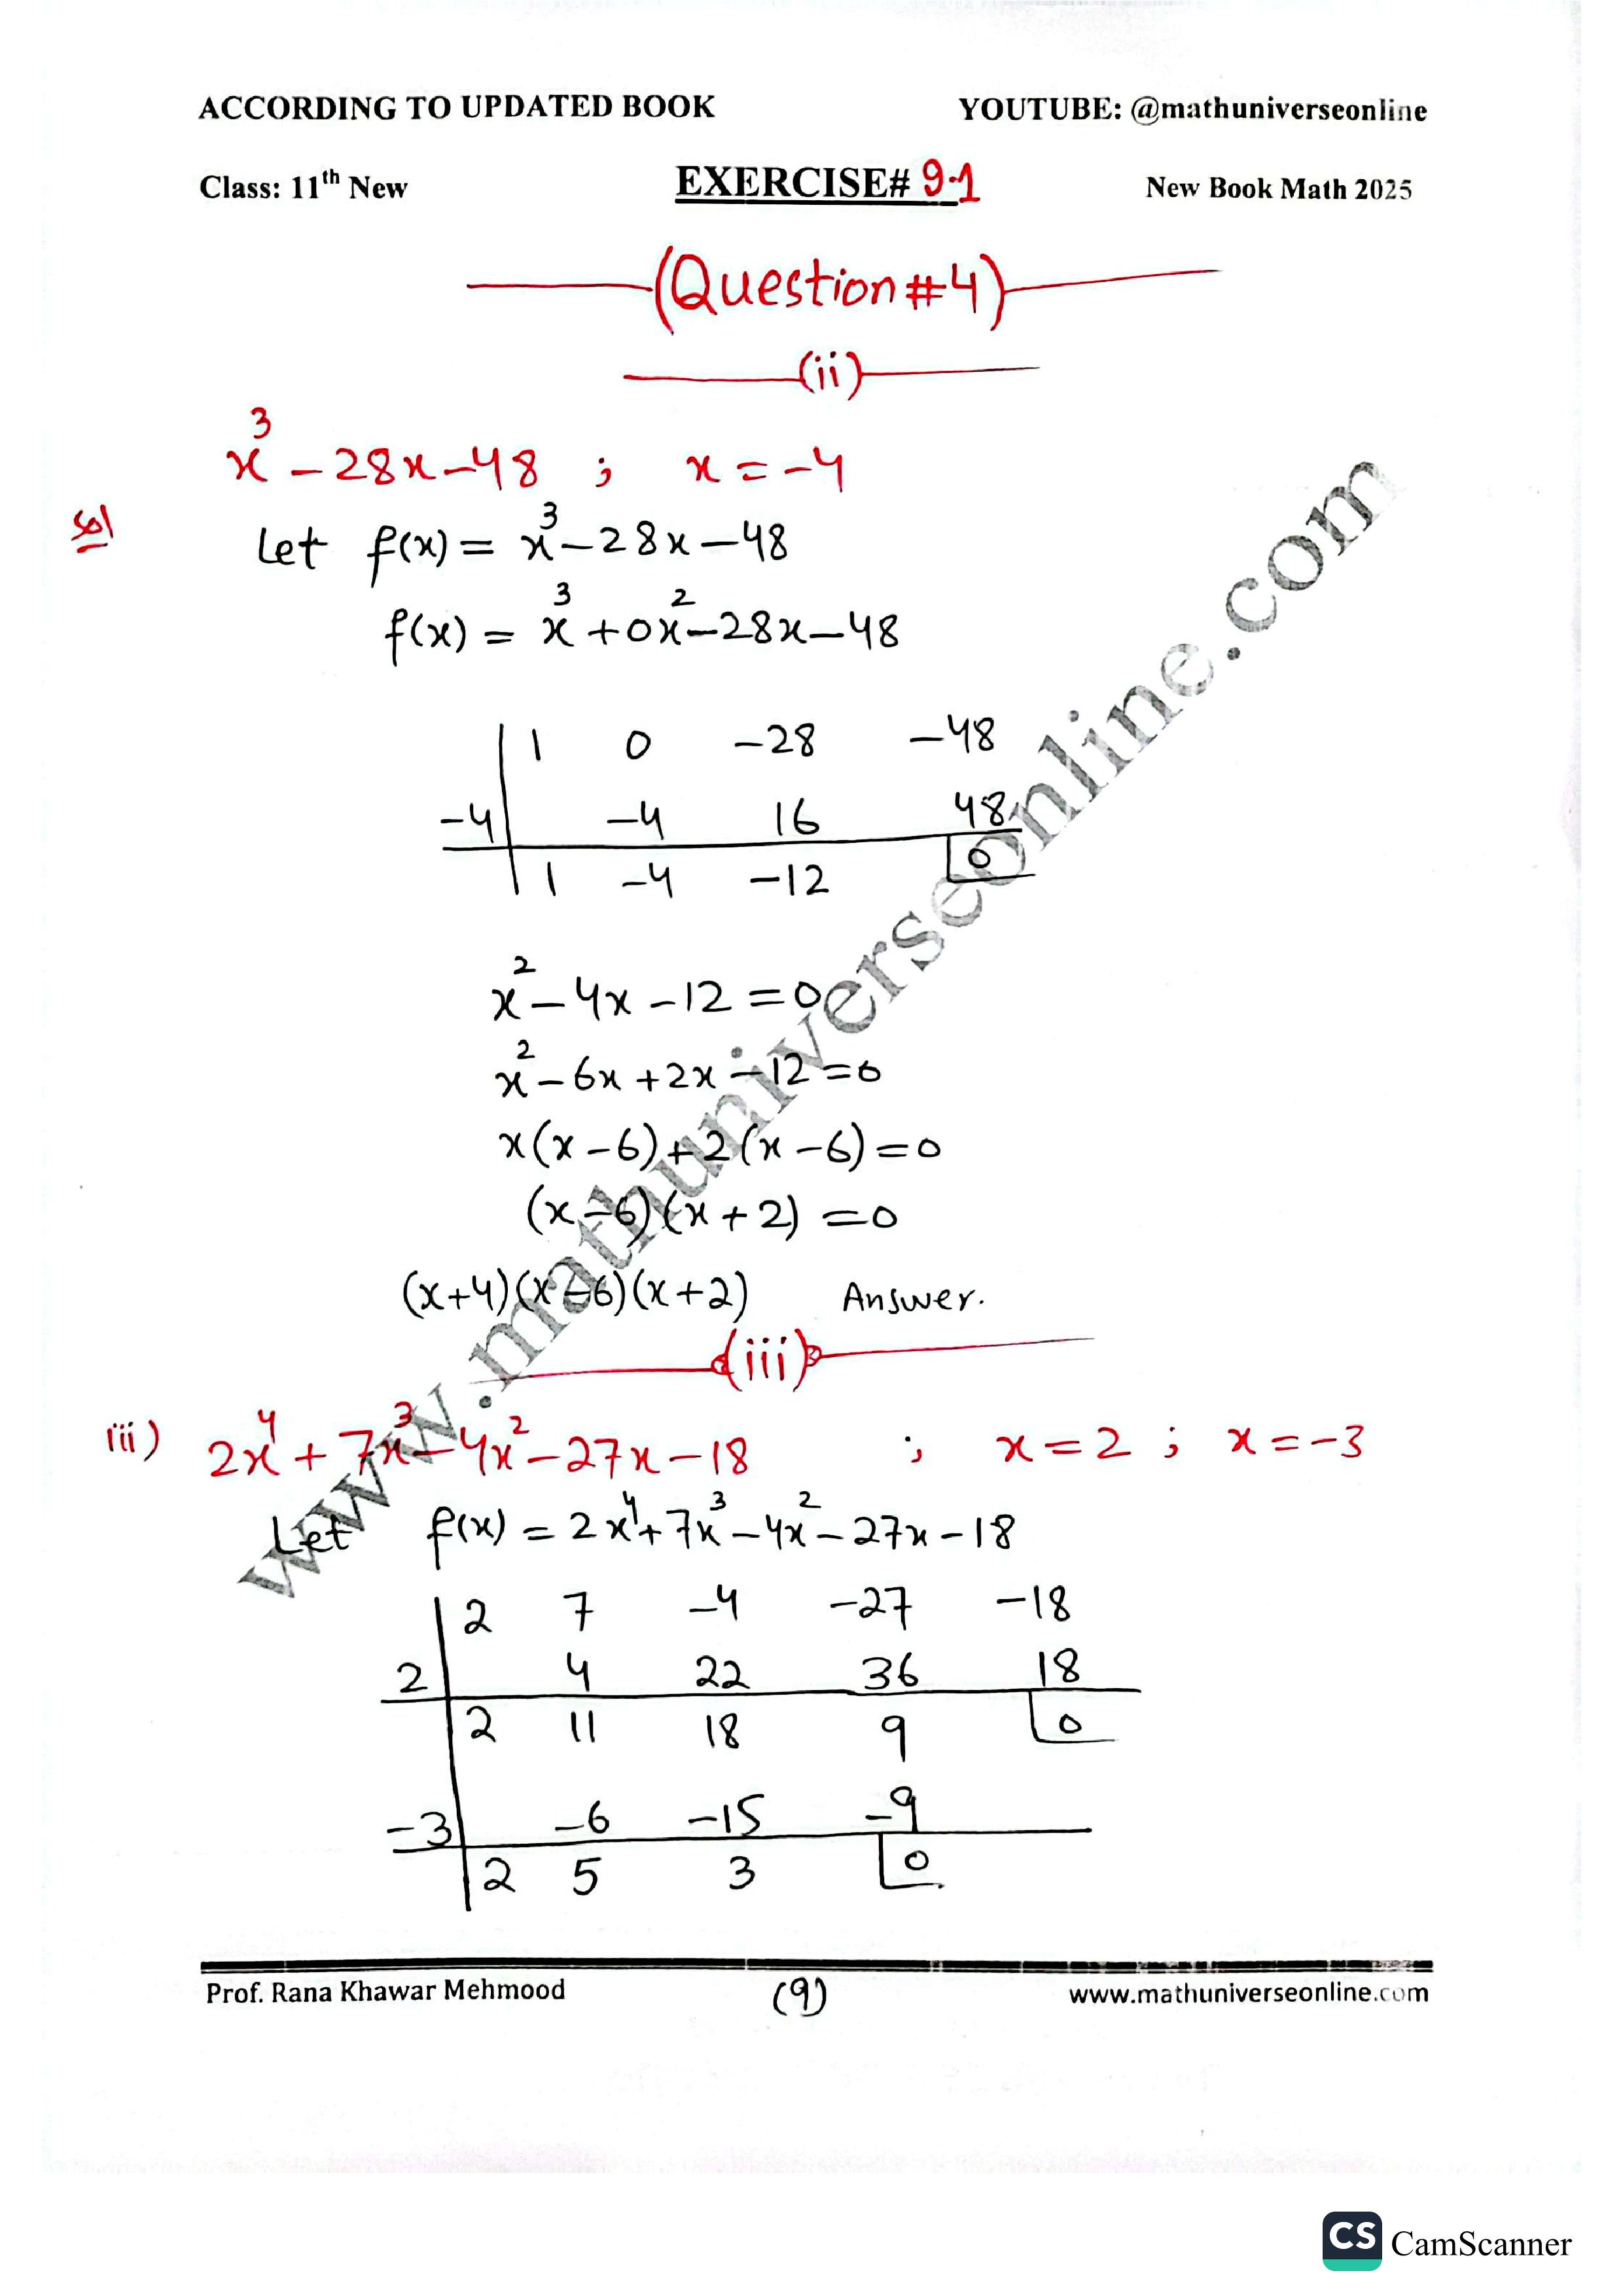 ACCORDING TO UPDATED BOOK YOUTUBE: @mathuniverseonline
Class: 11th New EXERCISE# 9.1 New Book Math 2025
(Question #4)
(ii)
x³ - 28x - 48 ; x = -4
Sol
Let f(x) = x³ - 28x - 48
f(x) = x³ + 0x² - 28x - 48
1 0 -28 -48
-4 -4 16 48
1 -4 -12 0
x² - 4x - 12 = 0
x² - 6x + 2x - 12 = 0
x(x - 6) + 2(x - 6) = 0
(x - 6)(x + 2) = 0
(x+4)(x-6)(x+2) Answer.
(iii)
iii) 2x⁴ + 7x³ - 4x² - 27x - 18 ; x = 2 ; x = -3
Let f(x) = 2x⁴ + 7x³ - 4x² - 27x - 18
2 7 -4 -27 -18
2 4 22 36 18
2 11 18 9 0
-3 -6 -15 -9
2 5 3 0
www.mathuniverseonline.com
Prof. Rana Khawar Mehmood (9) www.mathuniverseonline.com
CS CamScanner